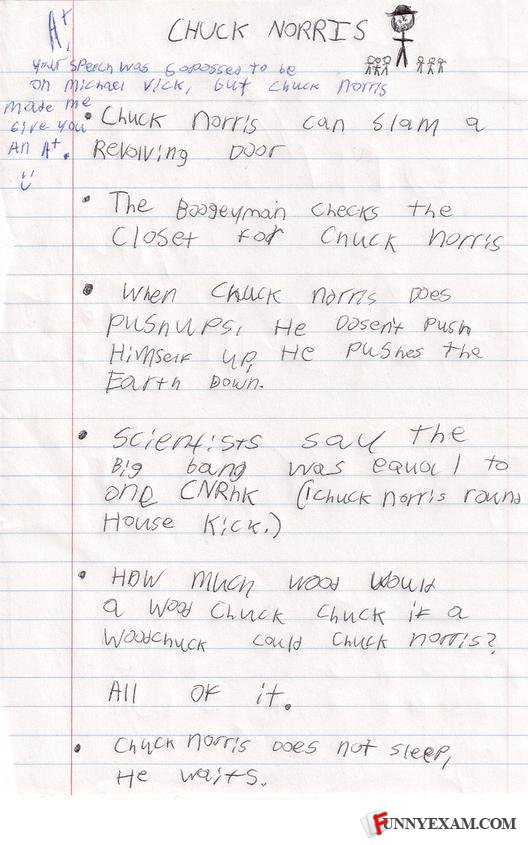 CHUCK NORRIS
A+,
your speech was soposses to be
on Michael Vick, but Chuck Norris
made me
Give you
An A+.
• Chuck Norris can slam a
Revolving Door
• The Boogeyman checks the
Closet for Chuck Norris
• When Chuck Norris Does
pushups, He Dosen't Push
Himself up, He pushes the
Earth Down.
• Scientists say the
Big bang was equal to
one CNRhK (1 Chuck Norris round
House Kick.)
• HOW much wood would
a wood chuck chuck if a
woodchuck could chuck norris?
All OF it.
• Chuck Norris Does not sleep,
He waits.
FUNNYEXAM.COM